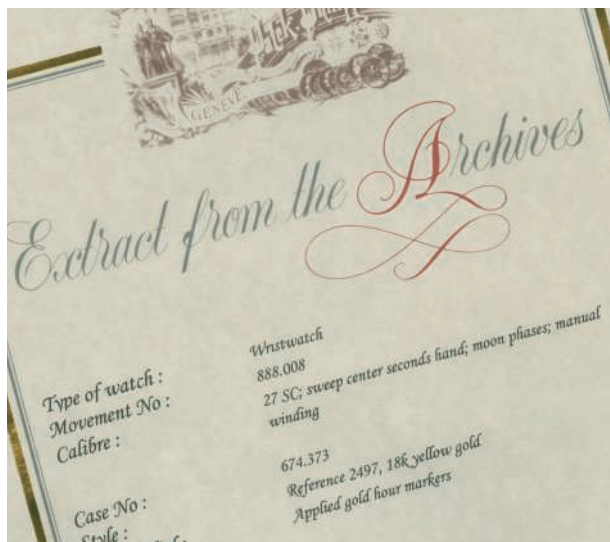 GENÈVE
Extract from the Archives
Type of watch : Wristwatch
Movement No : 888.008
Calibre : 27 SC; sweep center seconds hand; moon phases; manual
winding
Case No : 674.373
Style : Reference 2497, 18k yellow gold
Applied gold hour markers